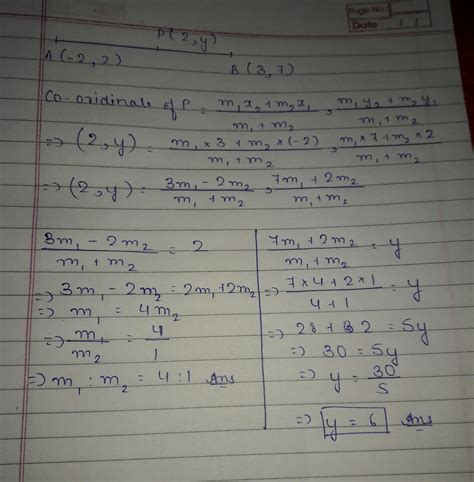 Page No.
Date : / /
P(2,y)
A(-2,2)
B(3,7)
Co-oridinate of P = (m₁x₂+m₂x₁)/(m₁+m₂) , (m₁y₂+m₂y₁)/(m₁+m₂)
=> (2,y) = (m₁×3+m₂×(-2))/(m₁+m₂) , (m₁×7+m₂×2)/(m₁+m₂)
=> (2,y) = (3m₁-2m₂)/(m₁+m₂) , (7m₁+2m₂)/(m₁+m₂)
(3m₁-2m₂)/(m₁+m₂) = 2
=> 3m₁-2m₂ = 2m₁+2m₂
=> m₁ = 4m₂
=> m₁/m₂ = 4/1
=> m₁ : m₂ = 4:1 Ans
(7m₁+2m₂)/(m₁+m₂) = y
=> (7×4+2×1)/(4+1) = y
=> 28+2 = 5y
=> 30 = 5y
=> y = 30/5
=> y = 6 Ans